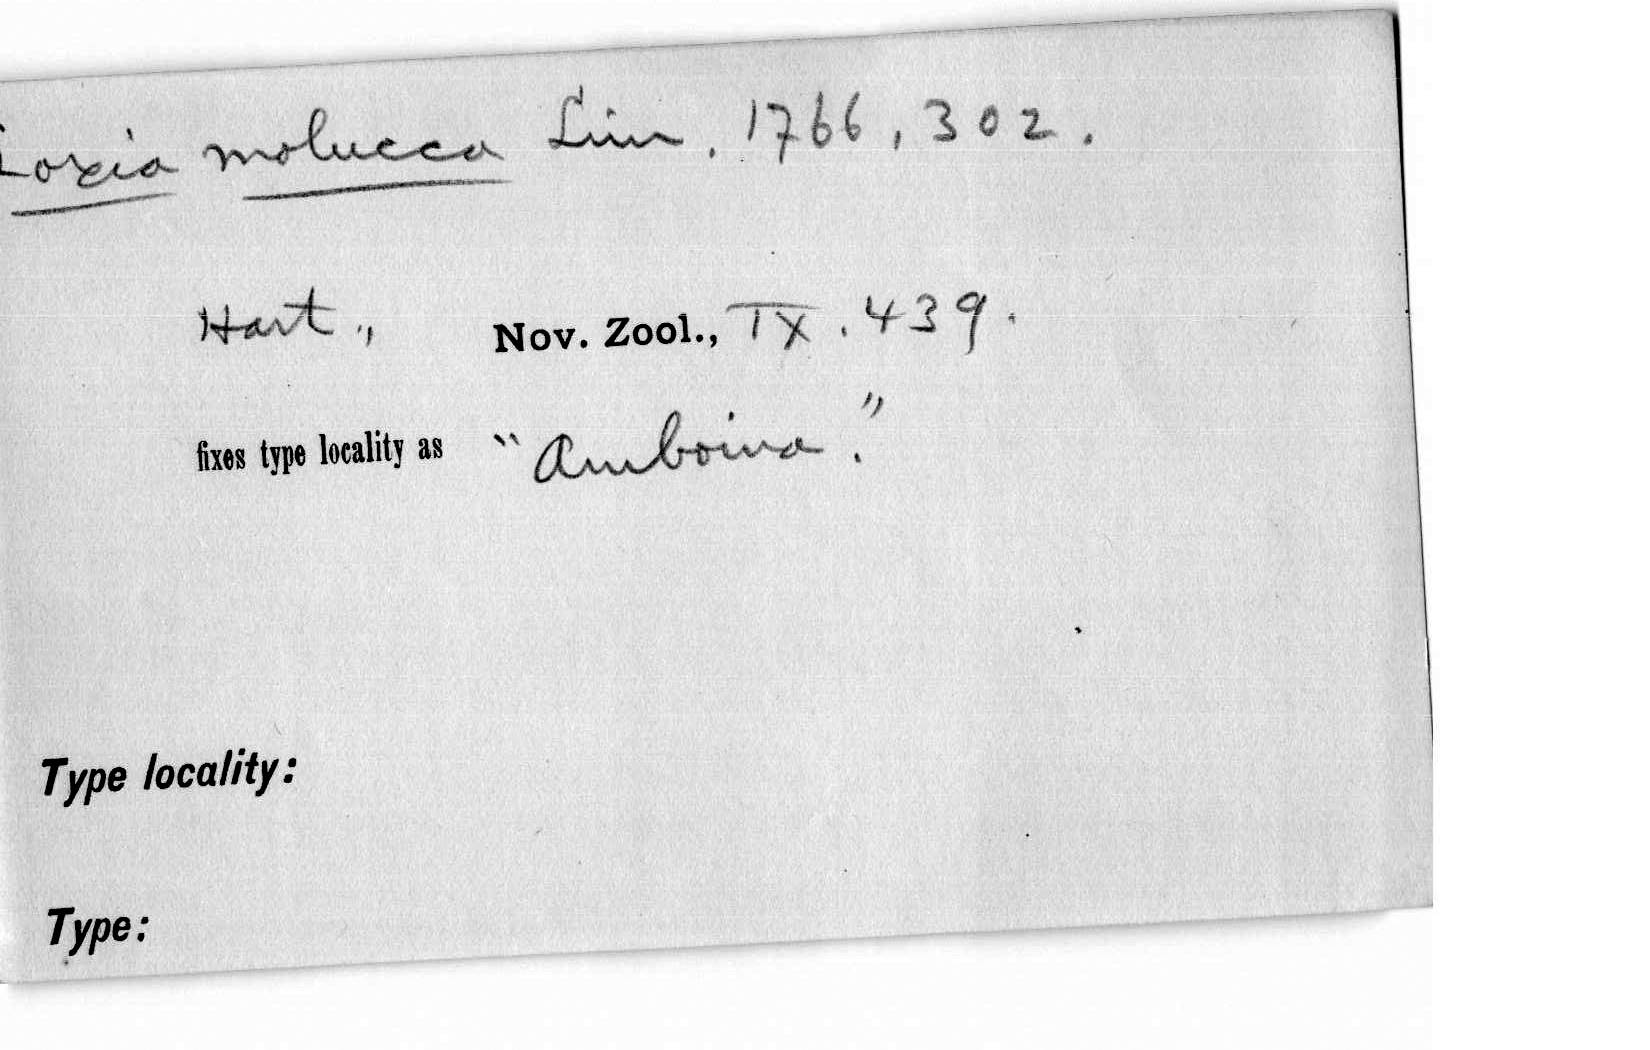 Loxia molucca Linn. 1766, 302.
Hart., Nov. Zool., IX. 439.
fixes type locality as "Amboina."
Type locality:
Type: